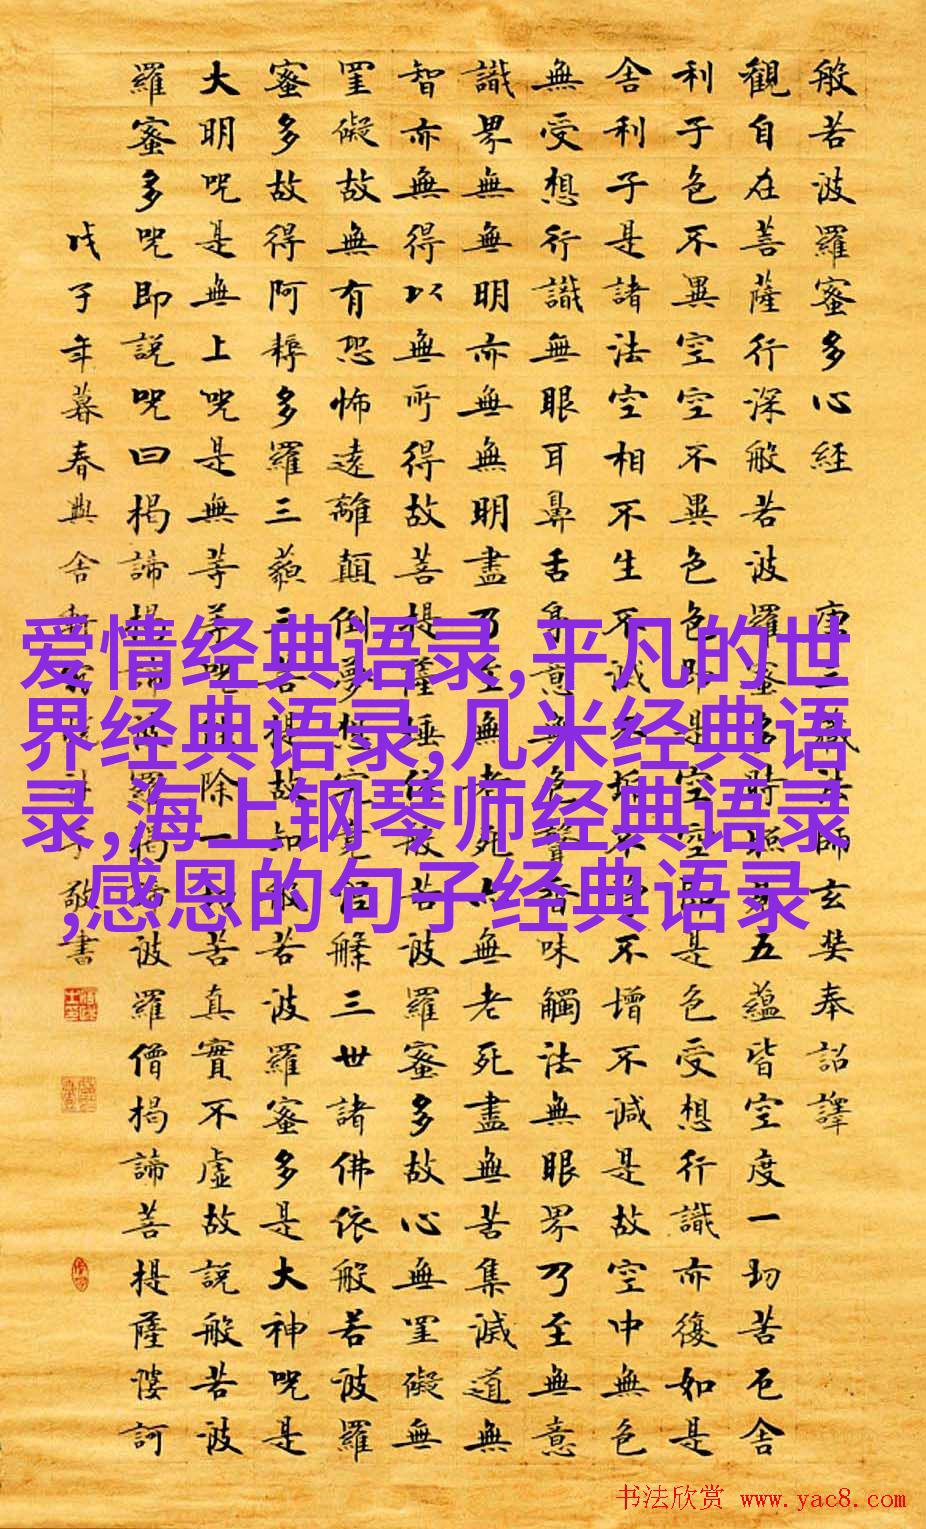 般若波羅蜜多心経 唐三藏法師玄奘奉詔譯
觀自在菩薩行深般若波羅蜜多時照見五蘊皆空度一切苦厄舍
利子色不異空空不異色色即是空空即是色受想行識亦復如是
舍利子是諸法空相不生不滅不垢不淨不增不減是故空中無色
無受想行識無眼耳鼻舌身意無色聲香味觸法無眼界乃至無意
識界無無明亦無無明盡乃至無老死亦無老死盡無苦集滅道無
智亦無得以無所得故菩提薩埵依般若波羅蜜多故心無罣礙無
罣礙故無有恐怖遠離顛倒夢想究竟涅槃三世諸佛依般若波羅
蜜多故得阿耨多羅三藐三菩提故知般若波羅蜜多是大神咒是
大明咒是無上咒是無等等咒能除一切苦真實不虛故說般若波
羅蜜多咒即說咒曰揭諦揭諦波羅揭諦波羅僧揭諦菩提薩婆訶
戊子年暮春 敬書
爱情经典语录,平凡的世
界经典语录,几米经典语
录,海上钢琴师经典语录
,感恩的句子经典语录
书法欣赏 www.yac8.com